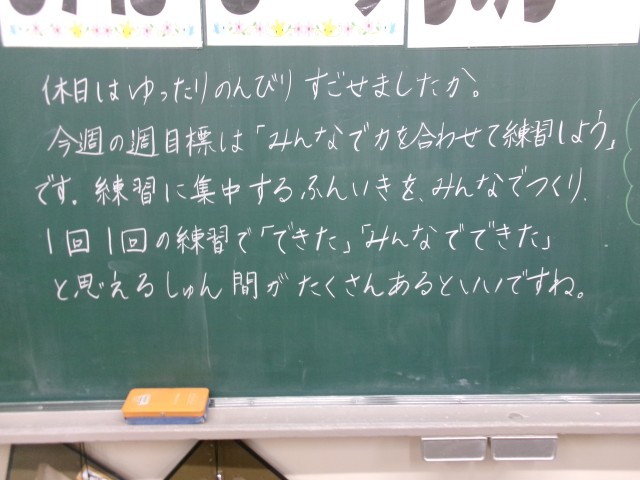 休日はゆったりのんびりすごせましたか。
今週の週目標は「みんなで力を合わせて練習しよう」
です。練習に集中するふんいきを、みんなでつくり、
1回1回の練習で「できた」「みんなでできた」
と思えるしゅん間がたくさんあるといいですね。